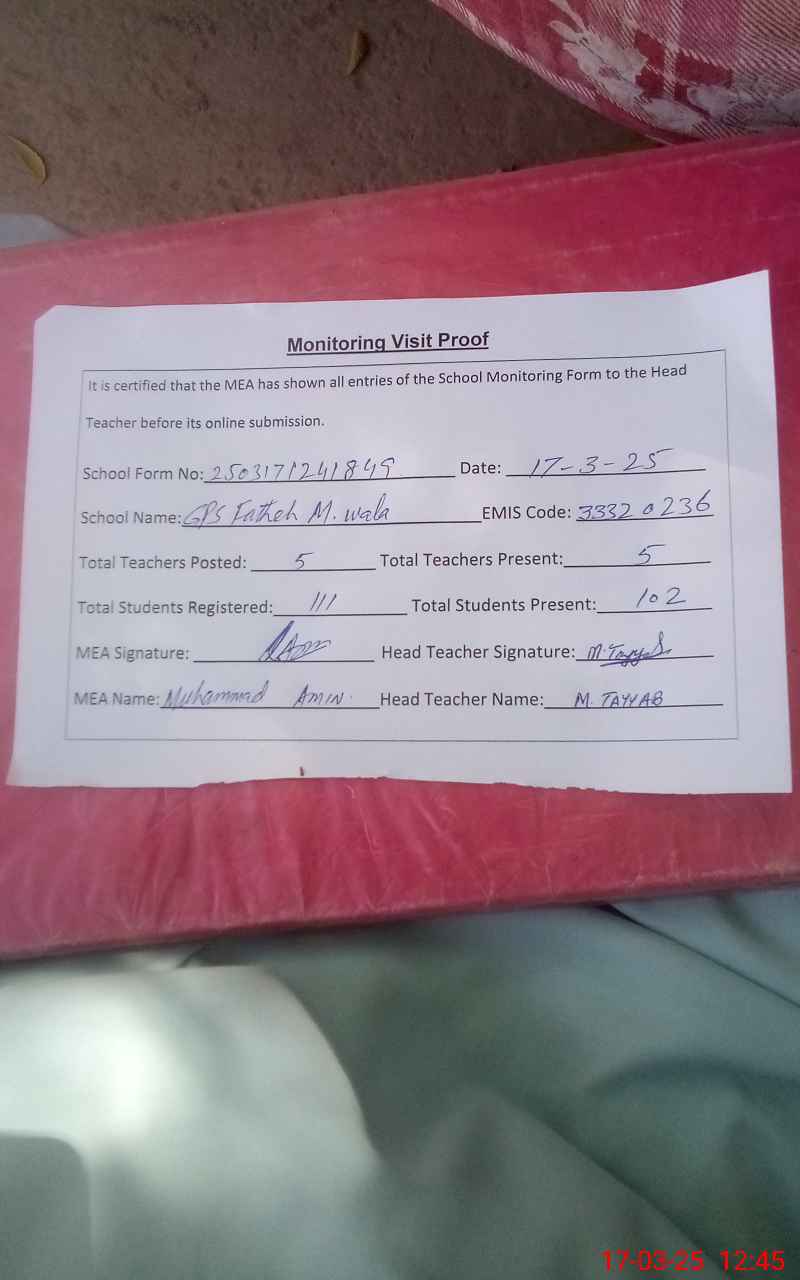 Monitoring Visit Proof
It is certified that the MEA has shown all entries of the School Monitoring Form to the Head
Teacher before its online submission.
School Form No: 2503171241849 Date: 17-3-25
School Name: GPS Fateh M. wala EMIS Code: 33320236
Total Teachers Posted: 5 Total Teachers Present: 5
Total Students Registered: 111 Total Students Present: 102
MEA Signature: Head Teacher Signature: M. Tayyab
MEA Name: Muhammad AMIN. Head Teacher Name: M. TAYYAB
17-03-25 12:45